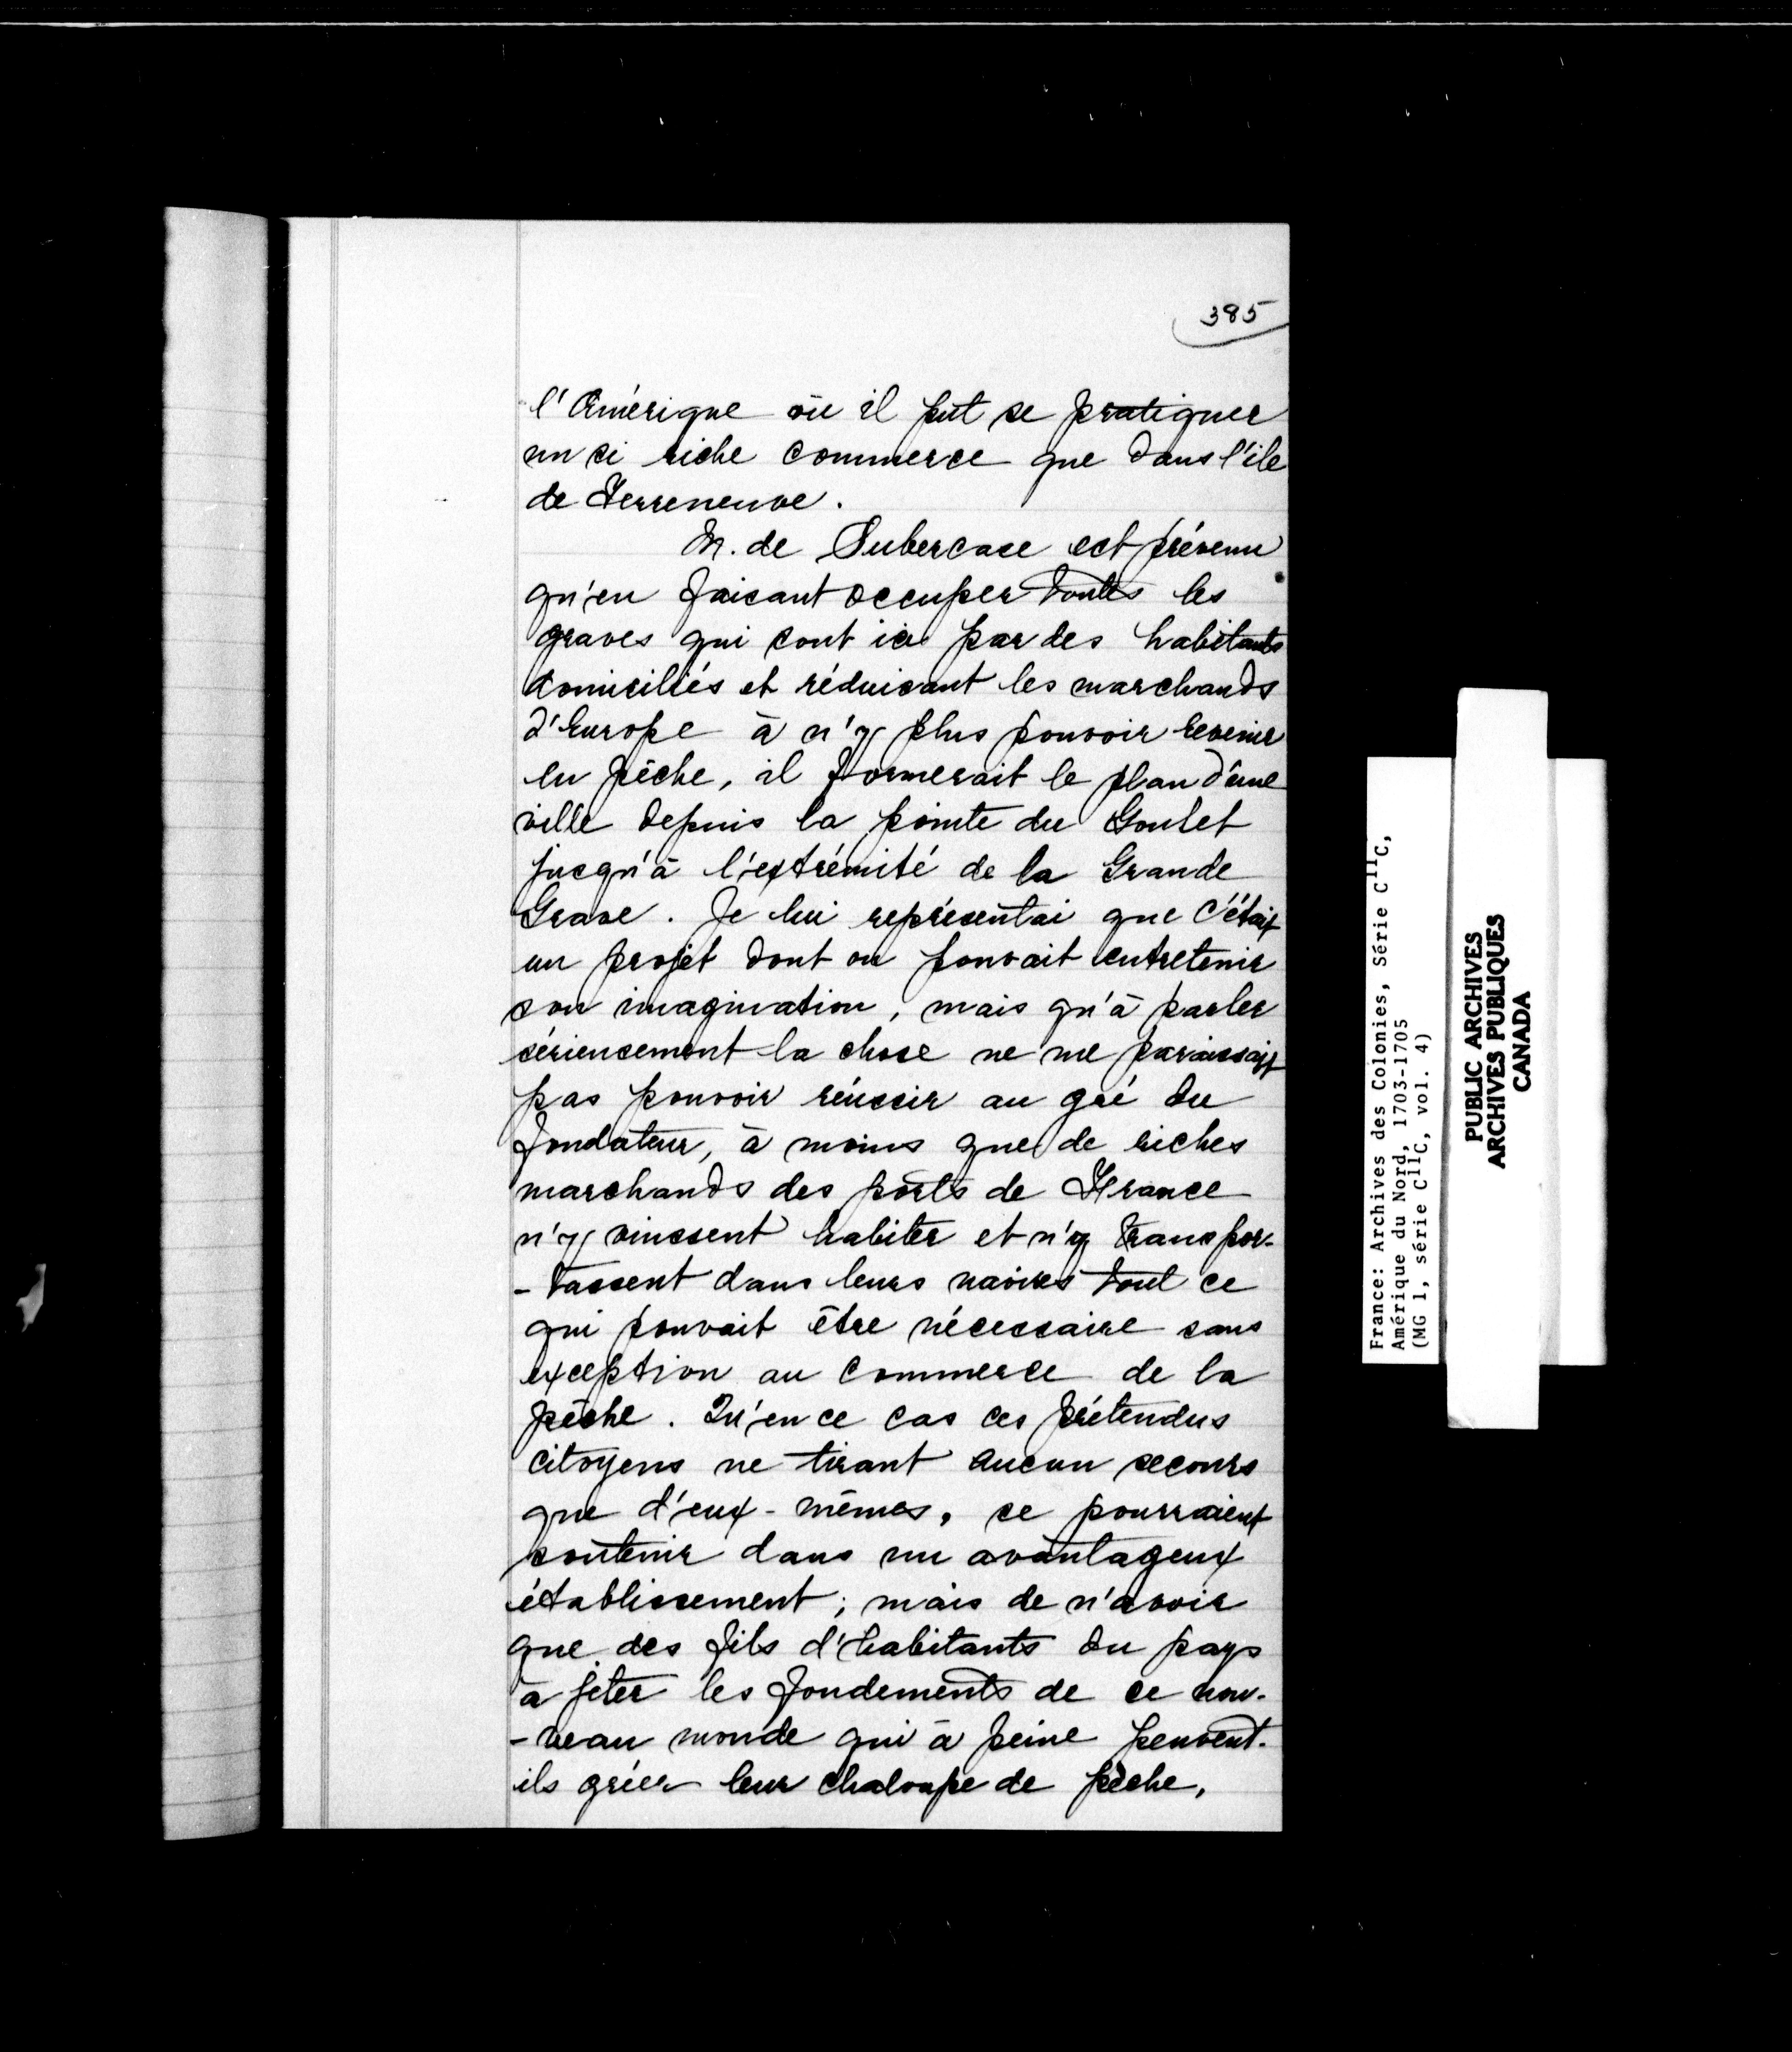 385
l'Amérique où il put se pratiquer
un si riche commerce que dans l'île
de Terreneuve.
M. de Subercase est prévenu
qu'en faisant occuper toutes les
graves qui sont ici par des habitants
domiciliés et réduisant les marchands
d'Europe à n'y plus pouvoir revenir
en pêche, il formerait le plan d'une
ville depuis la pointe du Goulet
jusqu'à l'extrémité de la Grande
Grave. Je lui représentai que c'était
un projet dont on pouvait entretenir
son imagination, mais qu'à parler
sérieusement la chose ne me paraissait
pas pouvoir réussir au gré du
fondateur, à moins que de riches
marchands des ports de France
n'y vinssent habiter et n'y transpor-
-tassent dans leurs navires tout ce
qui pouvait être nécessaire sans
exception au commerce de la
pêche. Qu'en ce cas ces prétendus
citoyens ne tirant aucun secours
que d'eux-mêmes, se pourraient
soutenir dans un avantageux
établissement; mais de n'avoir
que des fils d'habitants du pays
à jeter les fondements de ce nou-
-veau monde qui à peine peuvent-
ils gréer leur chaloupe de pêche,
France: Archives des Colonies, Série C11C,
Amérique du Nord, 1703-1705
(MG 1, série C11C, vol. 4)
PUBLIC ARCHIVES
ARCHIVES PUBLIQUES
CANADA